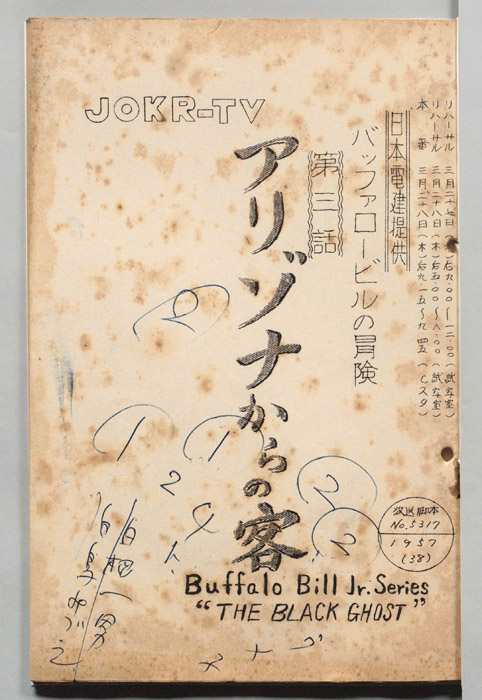 リハーサル 三月二十七日(水)后九.〇〇〜一二.〇〇(試写室)
リハーサル 三月二十八日(木)后五.〇〇〜八.〇〇(試写室)
本番 三月二十八日(木)后九.一五〜九.四五(Cスタ)
日本電建提供
バッファロービルの冒険
第三話
アリゾナからの客
JOKR-TV
Buffalo Bill Jr. Series
"THE BLACK GHOST"
放送脚本
No.5317
1957
(38)
2
1
1
2
2
2